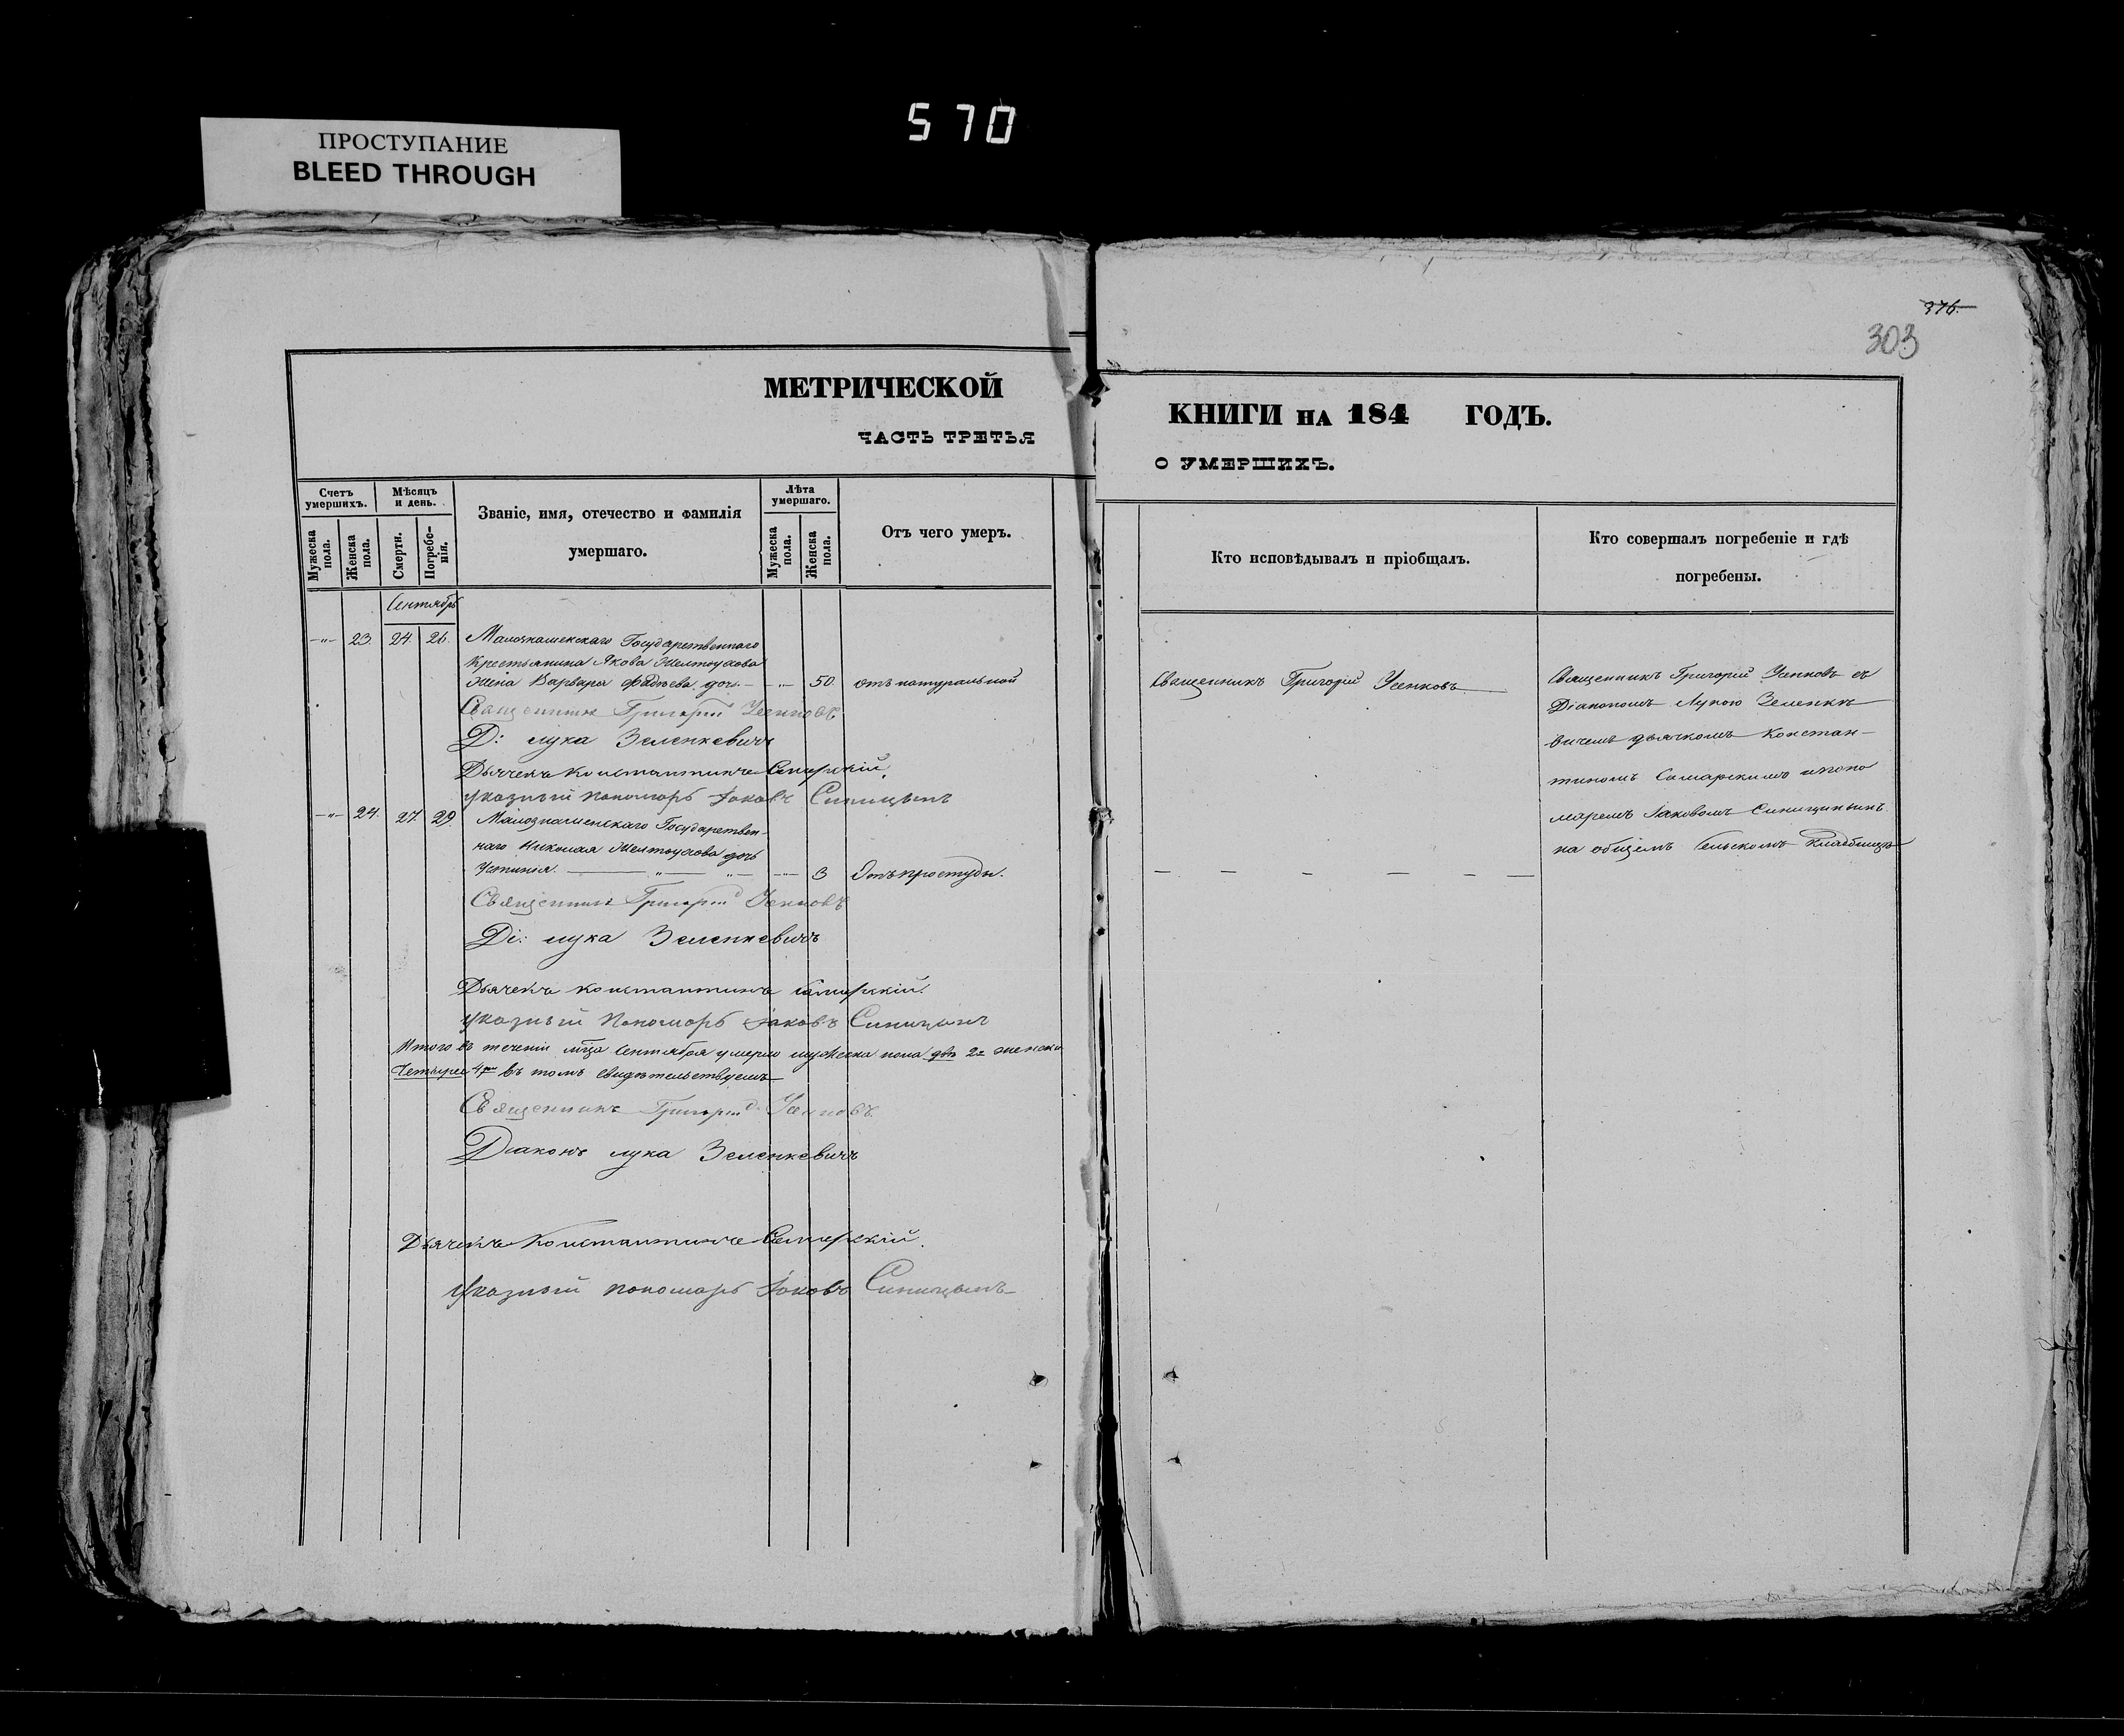 570
ПРОСТУПАНИЕ
BLEED THROUGH
376.
303
МЕТРИЧЕСКОЙ
ЧАСТЬ ТРЕТЬЯ
КНИГИ НА 184 ГОДЪ.
О УМЕРШИХЪ.
Счетъ умершихъ.
Мужеска пола.
Женска пола.
Мѣсяцъ и день.
Смерти.
Погребенія.
Званіе, имя, отечество и фамилія
умершаго.
Лѣта умершаго.
Мужеска пола.
Женска пола.
Отъ чего умеръ.
Кто исповѣдывалъ и пріобщалъ.
Кто совершалъ погребеніе и гдѣ
погребены.
Сентябрь
-"- 23. 24. 26. Малознаменскаго Государственнаго
Крестьянина Якова Желтоухова
жена Варвара Фадѣева доч. -"- 50. отъ натуральной
Священникъ Григорій Усенковъ
Д: Лука Зеленкевичъ
Дьячекъ Константинъ Самарскій.
Указный пономарь Іаковъ Синицынъ
-"- 24. 27. 29. Малознаменскаго Государствен-
наго Николая Желтоухова дочь
-"- 3 Отъ простуды.
Священникъ Григорій Усенковъ
Ді: Лука Зеленкевичъ
Дьячекъ Константинъ Самарскій.
Указный Пономарь Іаковъ Синицынъ
Итого въ теченіи мца Сентября умерло мужеска пола два 2а женска
Четыре 4ре въ томъ свидѣтельствуемъ
Священникъ Григорій Усенковъ
Діаконъ Лука Зеленкевичъ
Дьячекъ Константинъ Самарскій.
Указный пономарь Іаковъ Синицынъ
Священникъ Григорій Усенковъ
Священникъ Григорій Усенковъ съ
Діакономъ Лукою Зеленке
вичемъ дьячкомъ Констан-
тиномъ Самарскимъ и поно
маремъ Іаковомъ Синицынымъ
на общемъ Сельскомъ кладбищѣ